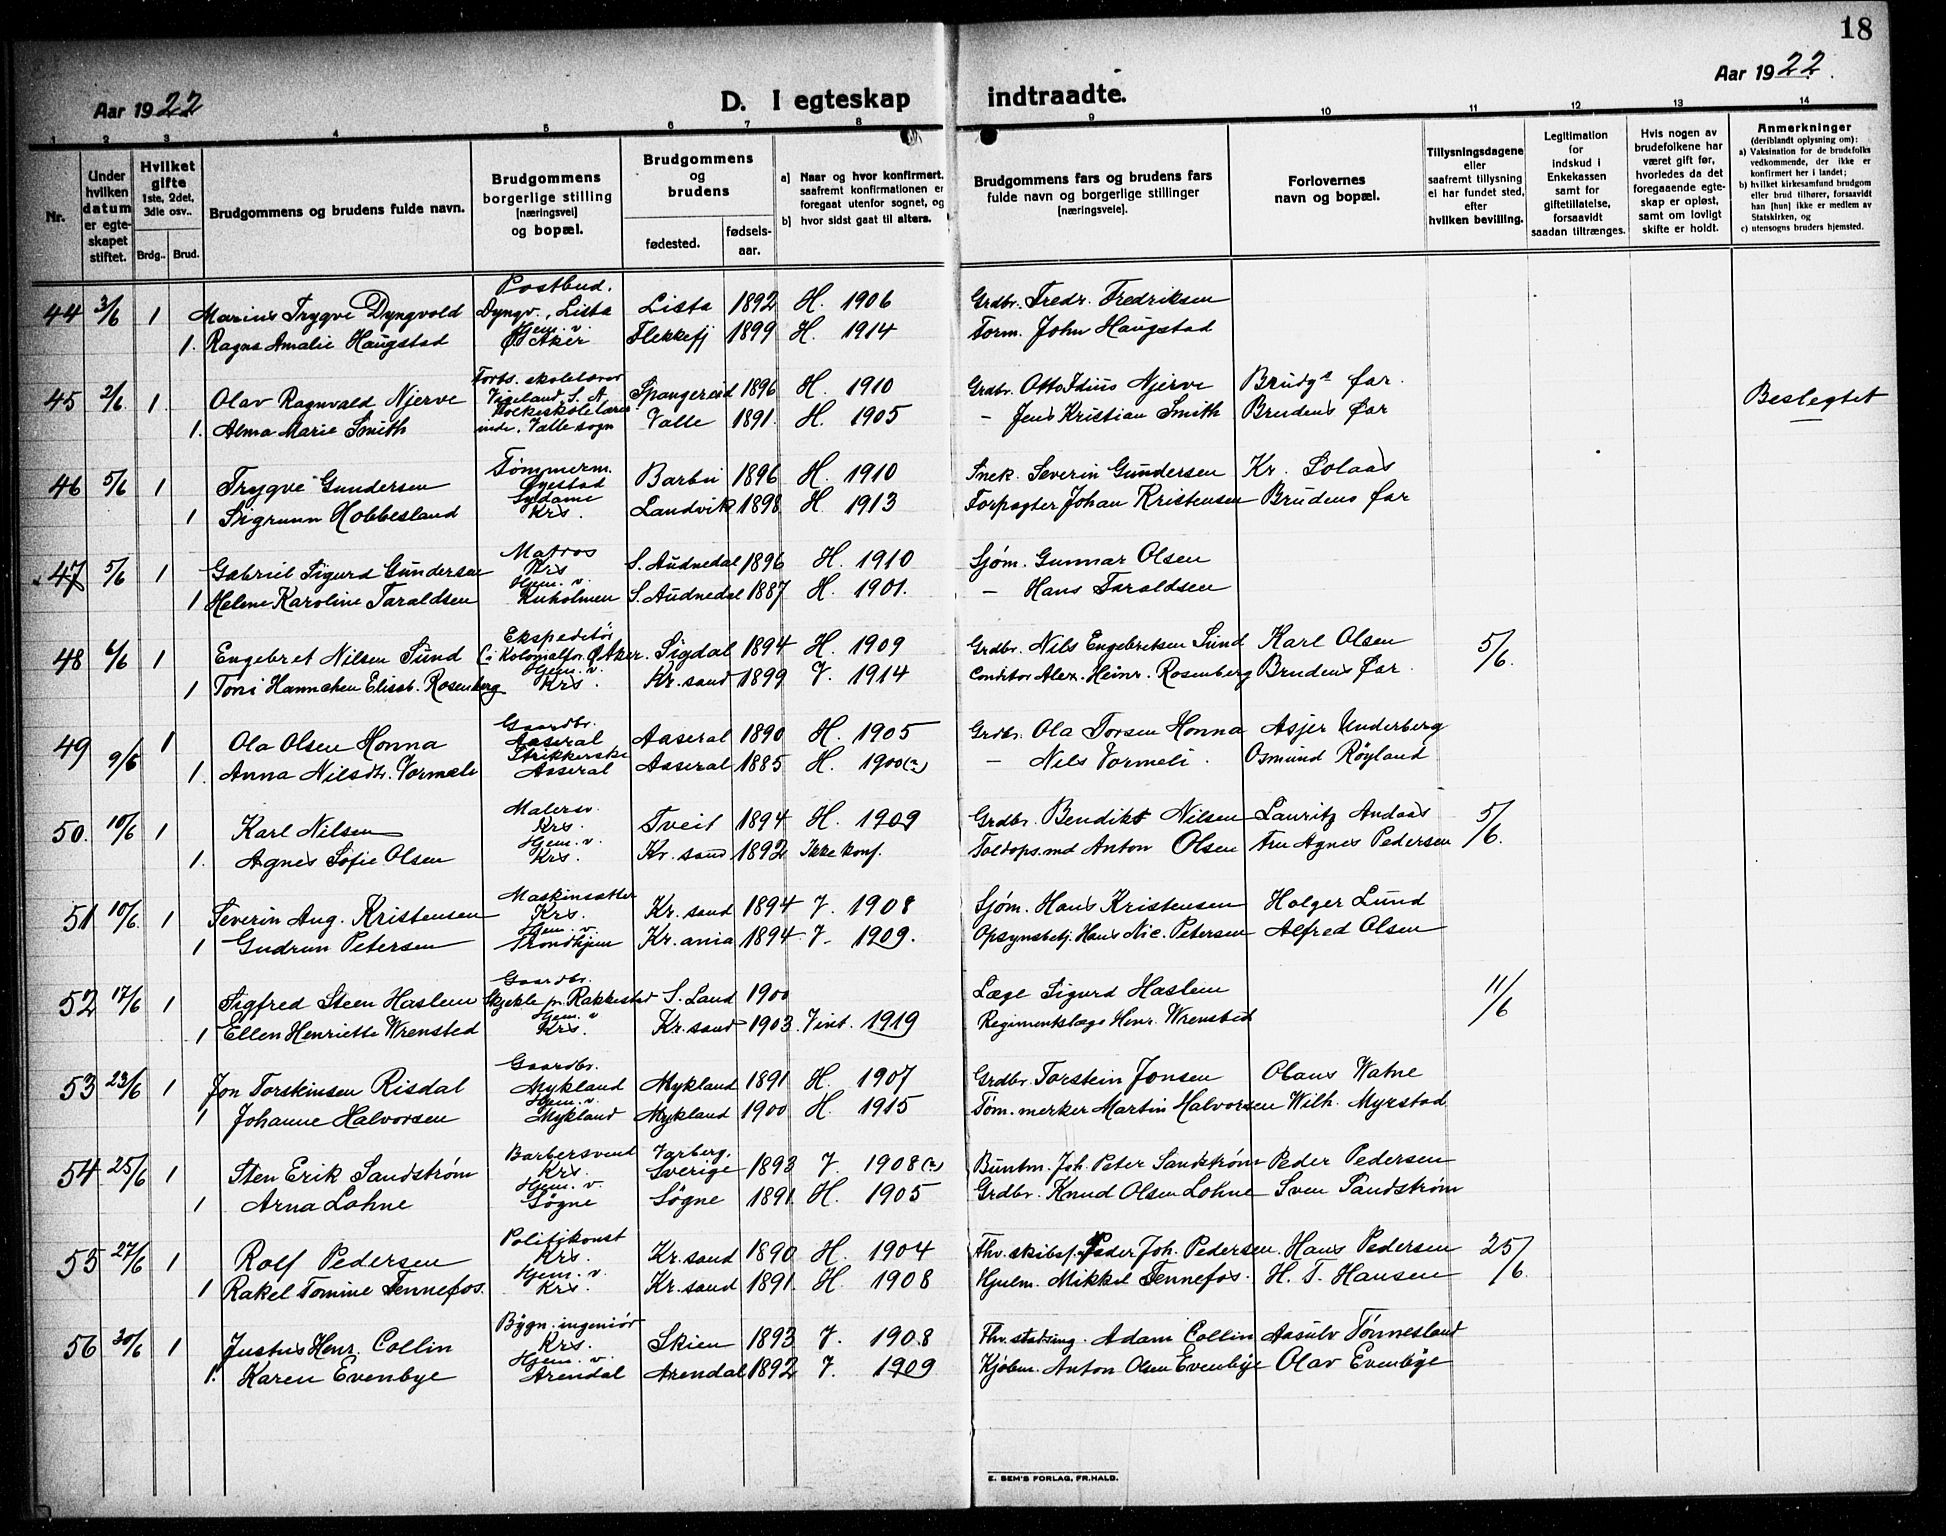 18
Aar 1922 D. I egteskap indtraadte. Aar 1922.
1 2 3 4 5 6 7 8 9 10 11 12 13 14
Nr.
Under hvilken datum er egteskapet stiftet.
Hvilket gifte 1ste, 2det, 3die osv..
Brdg.. Brud.
Brudgommens og brudens fulde navn.
Brudgommens borgerlige stilling [næringsvei] og bopæl.
Brudgommens og brudens
fødested. fødsels-aar.
a) Naar og hvor konfirmert, saafremt konfirmationen er foregaaet utenfor sognet, og
b) hvor sidst gaat til alters.
Brudgommens fars og brudens fars fulde navn og borgerlige stillinger [næringsveie].
Forlovernes navn og bopæl.
Tillysningsdagene eller saafremt tillysning ei har fundet sted, efter hvilken bevilling.
Legitimation for indskud i Enkekassen samt for giftetillatelse, forsaavidt saadan tiltrænges.
Hvis nogen av brudefolkene har været gift før, hvorledes da det foregaaende egteskap er opløst, samt om lovligt skifte er holdt.
Anmerkninger (deriblandt oplysning om):
a) Vaksination for de brudefolks vedkommende, der ikke er konfirmert her i landet;
b) hvilket kirkesamfund brudgom eller brud tilhører, forsaavidt han [hun] ikke er medlem av Statskirken, og
c) utensogns bruders hjemsted.
44 3/6 1 Marius Trygve Dyngvold Postbud. Dyngv., Lista Lista 1892 H. 1906 Grdbr. Fredr. Fredriksen
1. Ragna Amalie Haugstad Hjem. v. Ø. Aker Flekkefj 1899 H. 1914 Form. John Haugstad
45 2/6 1. Olav Ragnvald Njerve Forts. skolelærer Vigeland, S. A. Spangereid 1896 H. 1910 Grdbr. Otto Idius Njerve Brudgs far. Beslegtet
1. Alma Marie Smith Folkeskolelærerinde, Valle sogn Valle 1891. H. 1905 – Jens Kristian Smith Brudens far
46 5/6 1 Trygve Gundersen Tømmerm. Øyestad Barbu 1896 H. 1910 Snek. Severin Gundersen Kr. Solaas
1 Sigrunn Hobbesland Sydame Krs. Landvik 1898 H 1913 Forpagter Johan Kristensen Brudens far
47 5/6 1 Gabriel Sigurd Gundersen Matros Krs S. Audnedal 1896 H. 1910 Sjøm. Gunnar Olsen
1 Helene Karoline Taraldsen Hjem. v. Kuholmen S. Audnedal 1887 H. 1901. – Hans Taraldsen
48 6/6 1 Engebret Nilsen Sund Ekspeditør i Kolonialfor. Ø. Aker. Sigdal 1894 H. 1909 Grdbr. Nils Engebretsen Sund Karl Olsen 5/6.
1 Toni Hannchen Elisab. Rosenberg Hjem. v. Krs. Kr. sand 1899 V. 1914 Conditor Alex. Heinr. Rosenberg Brudens far.
49 9/6 1 Ola Olsen Honna Gaardbr. Aaseral Aaseral 1890 H. 1905 Grdbr. Ola Torsen Honna Asjer Underberg
1. Anna Nilsdtr. Vormeli Strikkerske Aaseral Aaseral 1885 H. 1900(?) – Nils Vormeli. Osmund Røyland
50. 10/6 1 Karl Nilsen Malersv. Krs. Tveit 1894 H. 1909 Grdbr. Bendikt Nilsen Lauritz Andaas 5/6.
1. Agnes Sofie Olsen Hjem. v. Krs. Kr. sand 1892 Ikke konf. Toldops.md Anton Olsen Fru Agnes Pedersen
51 10/6. 1 Severin Aug. Kristensen Maskinsetter Krs. Kr. sand 1894 V. 1908 Sjøm. Hans Kristensen Holger Lund
1 Gudrun Petersen Hjem. v. Trondhjem Kr. ania 1894. V. 1909. Opsynsbetj. Hans Nic. Petersen Alfred Olsen
52 17/6 1 Sigfred Steen Haslem Gaardbr. Skjekle pr. Rakkestad S. Land 1900 Læge Sigurd Haslem 11/6
1 Ellen Henriette Wrensted Hjem. v Krs. Kr. sand 1903. Vint. 1919 Regimentslæge Henr. Wrensted
53 23/6 1 Jon Torsteinsen Risdal Gaardbr. Mykland Mykland 1891 H. 1907 Grdbr. Torstein Jonsen Olaus Watne
1 Johanne Halvorsen Hjem. v. Mykland Mykland 1900 H. 1915 Tøm.merker Martin Halvorsen Wilh. Myrstad
54 25/6 1 Sten Erik Sandstrøm Barbersvend Krs. Varberg, Sverige 1893 V. 1908(?) Buntm. Joh. Peter Sandstrøm Peder Pedersen
1 Arna Lohne Hjem. v. Søgne Søgne 1891. H. 1905 Grdbr. Knud Olsen Lohne Sven Sandstrøm
55 27/6 1 Rolf Pedersen Politikonst Krs. Kr. sand 1890 H. 1904 Fhv. skibsf. Peder Joh. Pedersen. Hans Pedersen 25/6.
1 Rakel Tomine Tennefos. Hjem. v. Krs. Kr. sand 1891. H. 1908 Hjulm. Mikkel Tennefos. H. T. Hansen
56 30/6 1 Justus Henr. Collin Bygn. ingeniør Krs. Skien 1893 V. 1908 Fhv. stadsing. Adam Collin Aasulv Tønnesland
1. Karen Evenbye Hjem. v. Arendal Arendal 1892 V. 1909 Kjøbm. Anton Olsen Evenbye Olav Evenbye
E. SEM'S FORLAG, FR.HALD.